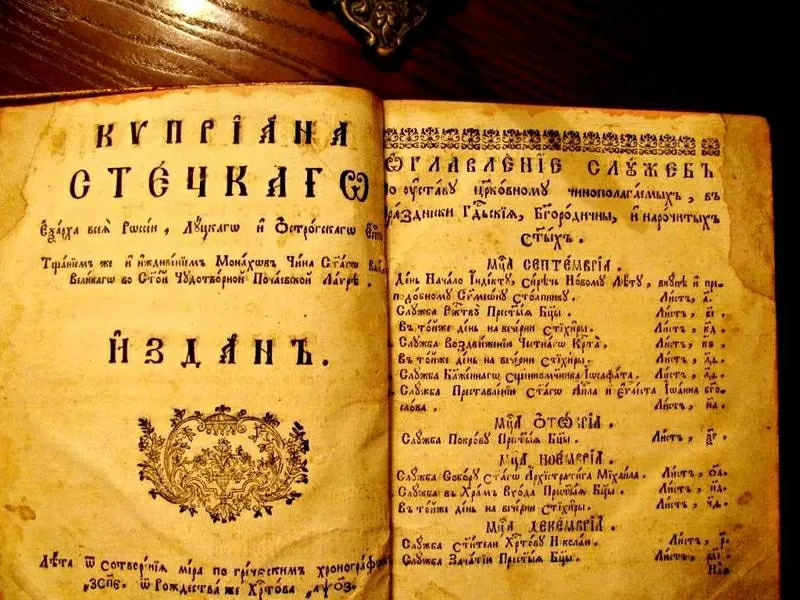 КѴПРІА́НА
СТЕ́ЦКАГѠ
Еѯа́рха всея̀ Рѡссіи, Лу́цкагѡ и҆ Ѻ҆стро́гскагѡ
Тща́нїемъ же и҆ и҆ждиве́нїемъ Мона́хѡвъ Чи́на Ст҃а́гѡ
Вели́кагѡ во Ст҃о́й Чудотво́рной Поча́евской Ла́ѵрѣ.
И҆́ЗДАНЪ.
Лѣ́та ѿ сотворе́нїѧ мі́ра по гре́ческимъ хроногра́фомъ
ѿ Рождества̀ же Хрⷭ҇то́ва
Ѡ҆ГЛАВЛЕ́НЇЕ СЛУ́ЖЕБЪ
По оу҆ста́ву церко́вному чинополага́емыхъ, въ
пра́здники Гдⷭ҇ьскїѧ, Бг҃оро́дичны, и҆ наро́читыхъ
Ст҃ы́хъ.
Мц҃а СЕПТЕ́МВРЇА.
День Нача́ло І҆нді́кту, си́рѣчь Но́вому Лѣ́ту, вку́пѣ и҆ пре-
подо́бному Сѷмео́ну Сто́лпнику. Листъ, а҃.
Слу́жба Ржⷭ҇тво̀ Прест҃ы́ѧ Бц҃ы. Листъ,
Въ то́йже де́нь на вече́рни Стїхи́ры. Листъ,
Слу́жба Воздвиже́нїю Честна́гѡ Крⷭ҇та̀. Листъ,
Въ то́йже де́нь на вече́рни Стїхи́ры. Листъ,
Слу́жба Блаже́ннагѡ Сщ҃енномч҃нка І҆ѡсафа́та. Листъ,
Слу́жба Преставле́нїю Ст҃а́гѡ Ап҃ла и҆ Еѵⷢ҇лі́ста І҆ѡа́нна Бг҃о-
сло́ва. Листъ,
Мц҃а Ѻ҆КТѠ́ВРЇА.
Слу́жба Покро́ву Прест҃ы́ѧ Бц҃ы. Листъ,
Мц҃а НОЕ́МВРЇА.
Слу́жба Собо́ру Ст҃а́гѡ А҆рхїстрати́га Мїхаи́ла. Листъ,
Слу́жба въ Хра́мъ Вхо́да Прест҃ы́ѧ Бц҃ы. Листъ,
Въ то́йже де́нь на вече́рни Стїхи́ры. Листъ,
Мц҃а ДЕКЕ́МВРЇА.
Слу́жба Ст҃и́телю Хрⷭ҇то́ву Нїкола́ю. Листъ, р҃.
Слу́жба Зача́тїю Прест҃ы́ѧ Бц҃ы. Листъ,